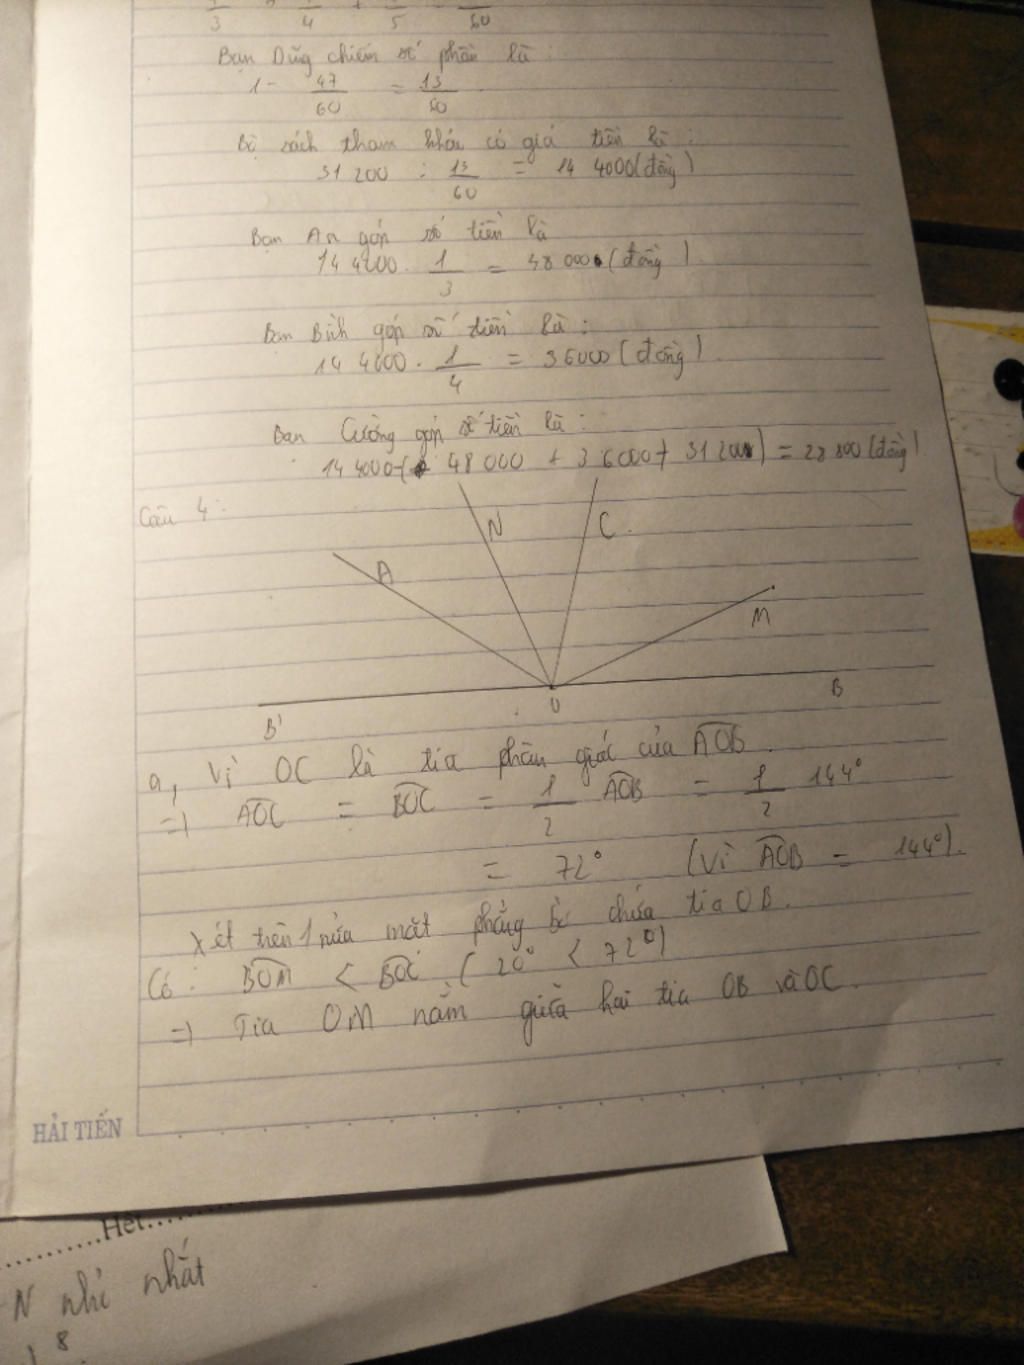 1/3 1/4 + 1/5 60
Bạn Dũg chiếm số phần là :
1 - 47/60 = 13/60
Bộ sách tham khảo có giá tiền là :
31 200 : 13/60 = 14 4000 (đồng)
Bạn An góp số tiền là
14 4000 . 1/3 = 48 000 (đồng)
Bạn Bình góp số tiền là :
14 4000 . 1/4 = 36000 (đồng)
Bạn Cường góp số tiền là :
14 4000 - ( 48 000 + 36000 + 31 200 ) = 28 800 (đồng)
Câu 4 :
N C
A
M
B' O B
a, Vì OC là tia phân giác của AOB .
=> AOC = BOC = 1/2 AOB = 1/2 144°
= 72° (Vì AOB = 144°).
Xét trên 1 nửa mặt phẳng bờ chứa tia OB .
Có : BOM < BOC ( 20° < 72°)
=> Tia OM nằm giữa hai tia OB và OC .
HẢI TIẾN
..........Hết..........
N nhỏ nhất
8